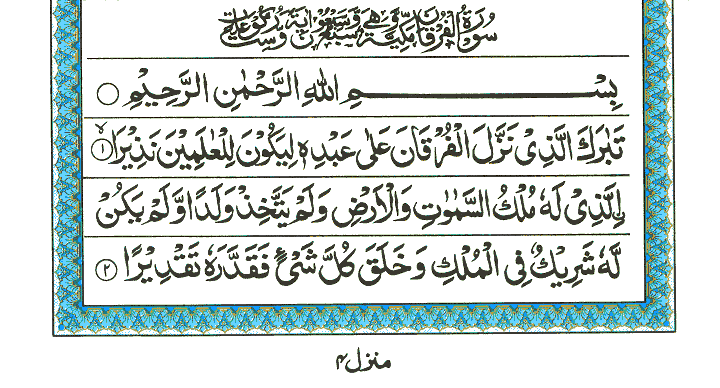 سُورَةُ الْفُرْقَانِ مَكِّيَّةٌ وَّهِيَ سَبْعٌ وَّسَبْعُوْنَ اٰيَةً وَّسِتُّ رُكُوْعَاتٍ
بِسْمِ اللّٰهِ الرَّحْمٰنِ الرَّحِيْمِ ○
تَبٰرَكَ الَّذِىْ نَزَّلَ الْفُرْقَانَ عَلٰى عَبْدِهٖ لِيَكُوْنَ لِلْعٰلَمِيْنَ نَذِيْرَا ۙ‏﴿۱﴾
ۨالَّذِىْ لَهٗ مُلْكُ السَّمٰوٰتِ وَالْاَرْضِ وَلَمْ يَتَّخِذْ وَلَدًا وَّلَمْ يَكُنْ
لَّهٗ شَرِيْكٌ فِى الْمُلْكِ وَخَلَقَ كُلَّ شَىْءٍ فَقَدَّرَهٗ تَقْدِيْرًا ﴿۲﴾
منزل ۴